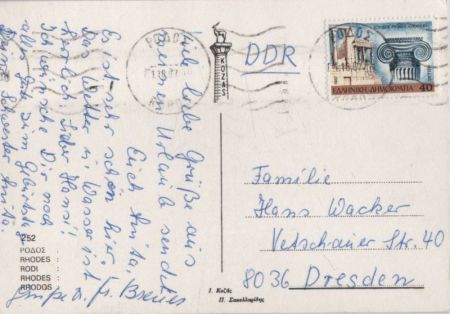 Viele liebe Grüße aus
meinem Urlaub sendet
Euch Anita.
Es ist sehr schön hier.
Das Wetter u. Wasser ist
herrlich. Lieber Hans!
Ich wünsche Dir noch
alles Gute zum Geburtstag
Deine Schwester Anita.
252
ΡΟΔΟΣ :
RHODES :
RODI :
RHODES :
RHODOS :
ΚΟΖΑΣ
DDR
ΡΟΔΟΣ
ΡΟΔΟΣ
ΕΛΛΗΝΙΚΗ ΔΗΜΟΚΡΑΤΙΑ 40
Familie
Hans Wacker
Vetschauer Str. 40
8036 Dresden
Ι. Κοζάς
Π. Σακελλαρίδης